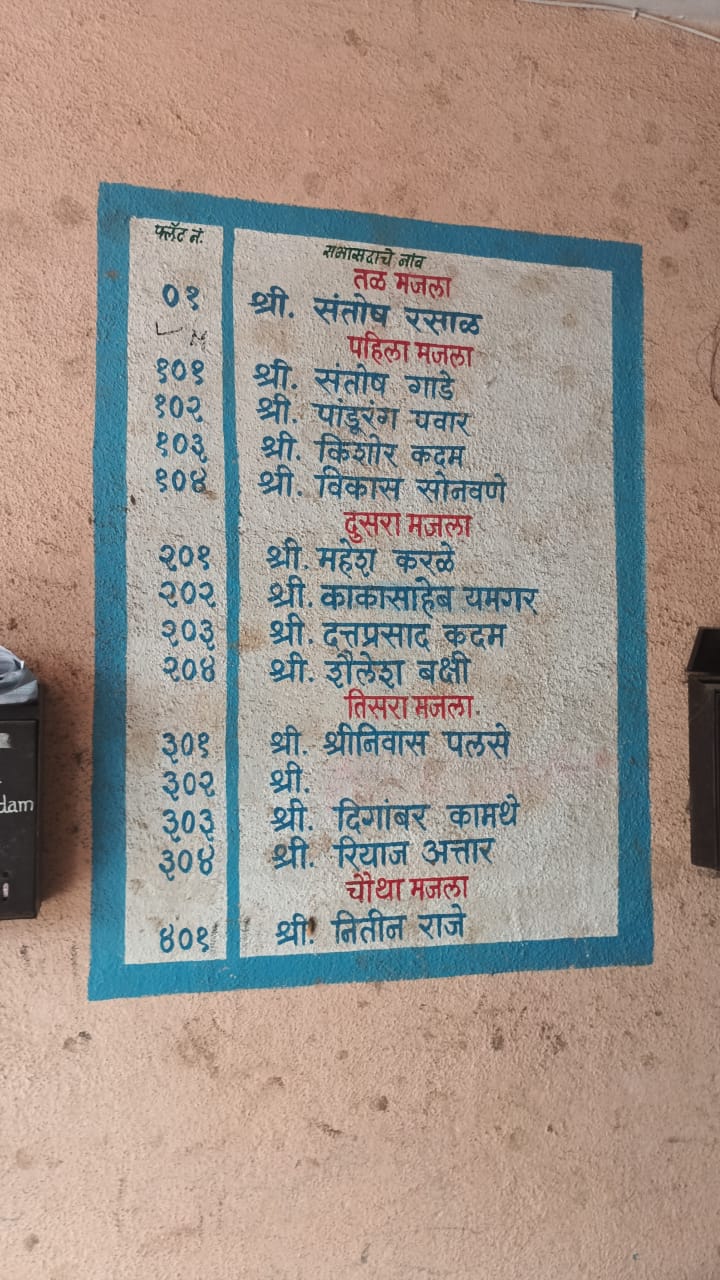 फ्लॅट नं. सभासदाचे नांव
तळ मजला
०१ श्री. संतोष रसाळ
पहिला मजला
१०१ श्री. संतोष गाडे
१०२ श्री. पांडूरंग पवार
१०३ श्री. किशोर कदम
१०४ श्री. विकास सोनवणे
दुसरा मजला
२०१ श्री. महेश करळे
२०२ श्री. काकासाहेब यमगर
२०३ श्री. दत्तप्रसाद कदम
२०४ श्री. शैलेश बक्षी
तिसरा मजला.
३०१ श्री. श्रीनिवास पलसे
३०२ श्री.
३०३ श्री. दिगांबर कामथे
३०४ श्री. रियाज अत्तार
चौथा मजला
४०१ श्री. नितीन राजे
dam